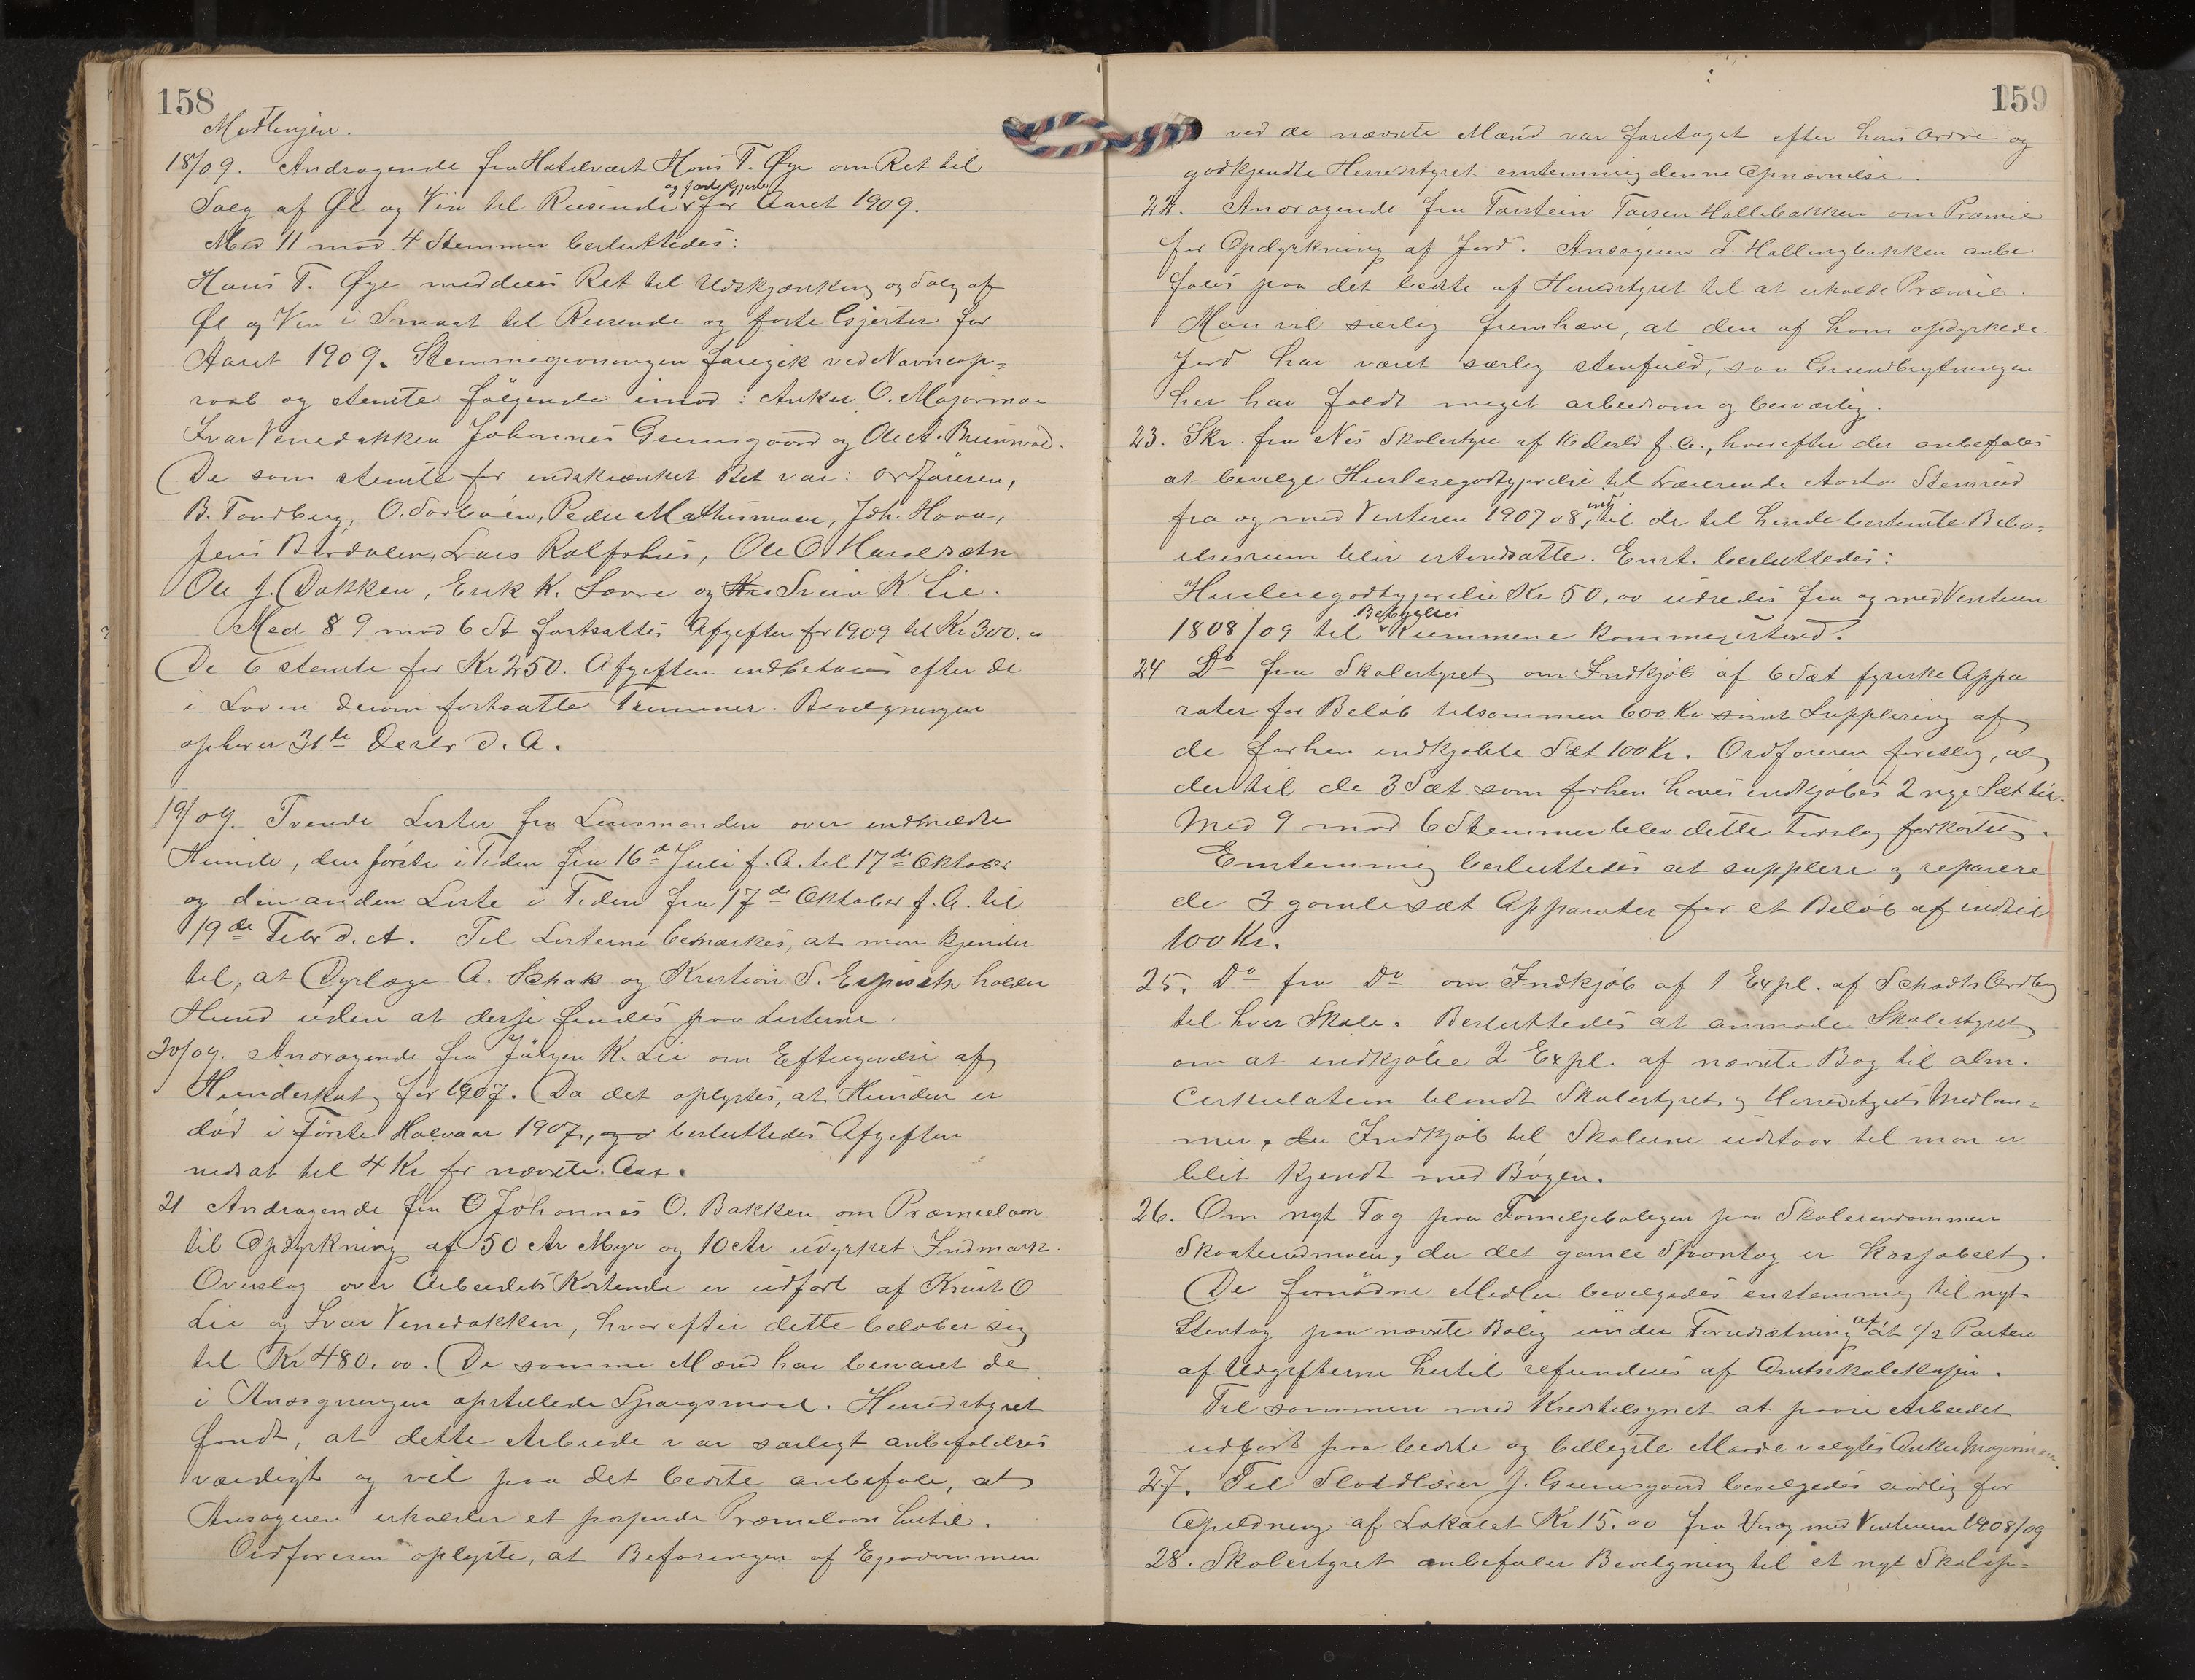 158
Medlinjen.
18/09. Andragende fra Hotelvært Hans T. Øye om Ret til
og faste Gjester
Salg af Øl og Vin til Reisende for Aaret 1909.
Med 11 mod 4 Stemmer besluttedes:
Hans T. Øye meddeles Ret til Udskjænkning og Salg af
Øl og Vin i Smaat til Reisende og faste Gjester for
Aaret 1909. Stemmegivningen foregik ved Navneop=
raab og stemte følgende imod: Anker O. Majormoen
Ivar Venedokken Johannes Grimsgaard og Ole A. Brunvold.
De som stemte for indskrænket Ret var: Ordføreren,
B. Tandberg, O. Sorbøen, Peder Mathismoen, Joh. Hova,
Jens Børdalen, Lars Rolfshus, Ole O. Haraldseth
Ole J. Dokken, Erik K. Lovre og Svein K. Lie.
Med 8 9 mod 6 St fastsattes Afgiften for 1909 til Kr 300.00
De 6 stemte for Kr 250. Afgiften indbetales efter de
i Loven derom fastsatte Terminer. Bevilgningen
ophører 31te Decbr d. A.
19/09. Tvende Lister fra Lensmanden over indmeldte
Hunde, den første i Tiden fra 16de Juli f. A. til 17de Oktober
og den anden Liste i Tiden fra 17de Oktober f. A. til
19de Febr d. A. Til Listerne bemærkes, at man kjender
til, at Dyrlæge A. Schak og Kristian S. Espeseth holder
Hund uden at disse findes paa Listerne.
20/09. Andragende fra Jørgen K. Lie om Eftergivelse af
Hundeskat for 1907. Da det oplystes, at Hunden er
død i Første Halvaar 1907, besluttedes Afgiften
nedsat til 4 Kr for nævnte Aar.
21 Andragende fra O Johannes O. Bakken om Præmielaan
til Opdyrkning af 50 Ar Myr og 10 Ar udyrket Indmark.
Overslag over Arbeidets Kostende er udført af Knut O
Lie og Ivar Venedokken, hvorefter dette beløber sig
til Kr 480.00. De samme Mænd har besvaret de
i Ansøgningen opstillede Spørgsmaal. Herredstyret
fandt, at dette Arbeide var særligt anbefalelses
værdigt og vil paa det bedste anbefale, at
Ansøgeren erholder et passende Præmielaan hertil.
Ordføreren oplyste, at Befaringen af Eiendommen
159
ved de nævnte Mænd var foretaget efter hans Ordre og
godkjendte Herredstyret enstemmig denne Opnævnelse.
22. Andragende fra Torstein Larsen Hallebakken om Præmie
for Opdyrkning af Jord. Ansøgeren T. Hallingbakken anbe
fales paa det bedste af Herredstyret til at erholde Præmie.
Man vil særlig fremhæve, at den af ham opdyrkede
Jord har været særlig stenfuld, saa Grundbrytningen
her har faldt meget arbeidsom og besværlig.
23. Skr. fra Nes Skolestyre af 16 Decbr f. A., hvorefter der anbefales
at bevilge Huslæiegodtgjørelse til Lærerinde Aasta Stensrud
ind
fra og med Vinteren 1907 08, til de til hende bestemte Bebo=
elsesrum blir istandsatte. Enst. besluttedes:
Huslæiegodtgjørelse Kr 50,00 udredes fra og med Vinteren
Beboelses
1808/09 til Rummene kommer istand.
24 Do fra Skolestyret om Indkjøb af 6 Sæt fysiske Appa
rater for Beløb tilsammen 600 Kr samt Supplering af
de forhen indkjøbte Sæt 100 Kr. Ordføreren foreslog, at
der til de 3 Sæt som forhen haves indkjøbes 2 nye Sæt til.
Med 9 mod 6 Stemmer blev dette Forslag forkastet.
Enstemmig besluttedes at supplere og reparere
de 3 gamle sæt Apparater for et Beløb af indtil
100 Kr.
25. Do fra Do om Indkjøb af 1 Expl. af Schadts Ordbog
til hver Skole. Besluttedes at anmode Skolestyret
om at indkjøbe 2 Expl. af nævnte Bog til alm.
Cirkulation blandt Skolestyrets og Herredstyrets Medlem=
mer, da Indkjøb til Skolerne udstaar til man er
blit kjendt med Bogen.
26. Om nyt Tag paa Familjeboligen paa Skoleeiendommen
Skoatendmoen, da det gamle Spaantag er kassabelt.
De fornødne Midler bevilgedes enstemmig til nyt
at
Stentag paa nævnte Bolig under Forudsætning at 1/2 Parten
af Udgifterne hertil refunderes af Amtsskolekassen.
Til sammen med Kirketilsynet at paase Arbeidet
udført paa bedste og billigste Maade valgtes Anker Majormoen.
27. Til Sløidlærer J. Grimsgaard bevilgedes aarlig for
Opildning af Lokalet Kr 15.00 fra og med Vinteren 1908/09
28. Skolestyret anbefaler Bevilgning til et nyt Skolop=